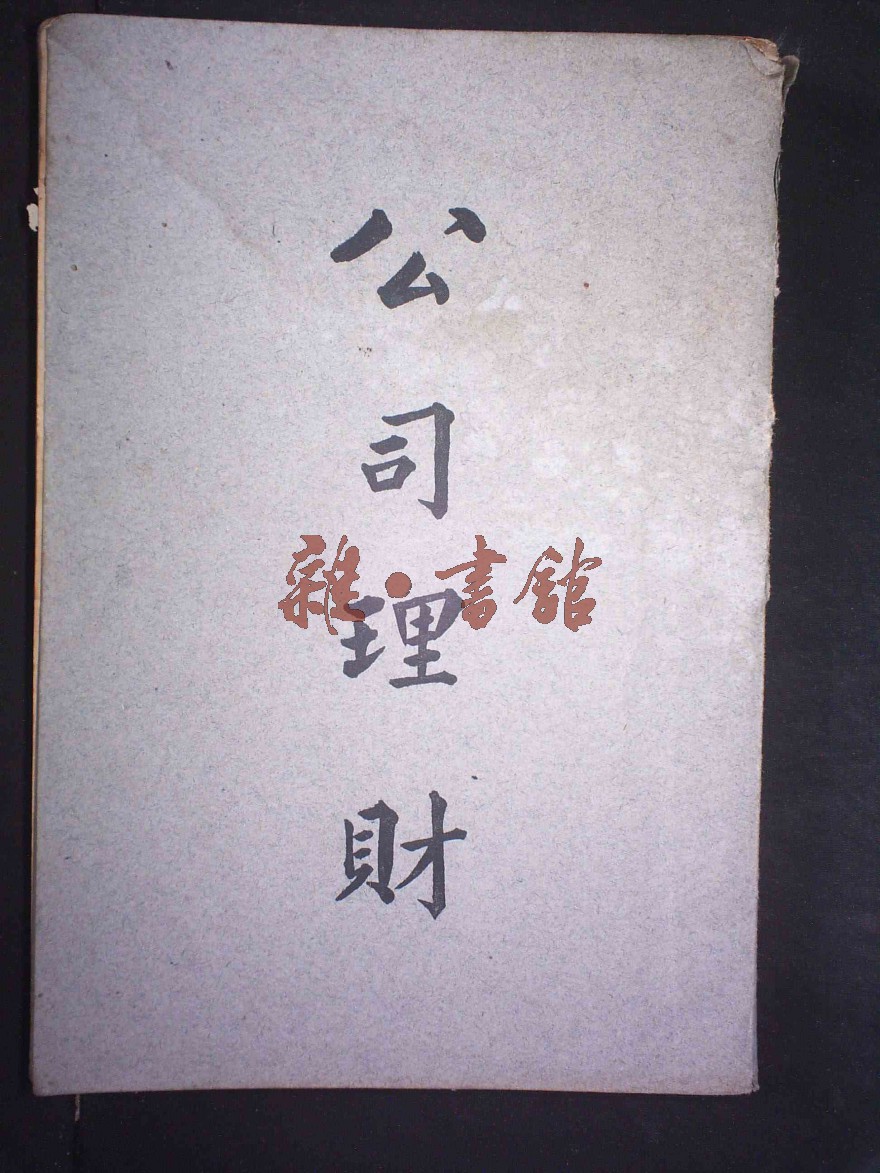 公司理財
雜·書館